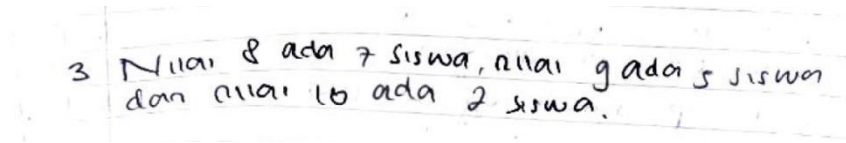 3 Nilai 8 ada 7 siswa, nilai 9 ada 5 siswa
dan nilai 10 ada 2 siswa.